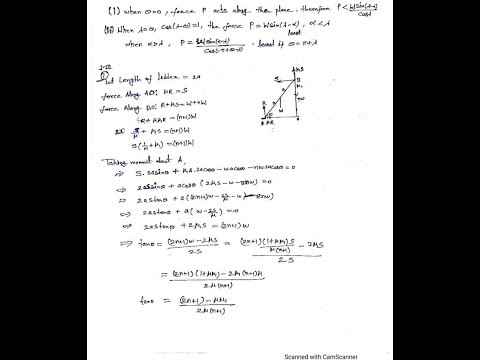 (i) when θ=0, force P acts along the plane, therefore P < Wsin(α-λ)/cosλ
(ii) When λ=θ, cos(λ-θ)=1, the force P = Wsin(λ-α), α<λ
least
when α>λ, P = Wsin(α-λ)/cos(-π+θ-λ) . least if θ=π+λ
Let Length of ladder = 2a
force Along AD: μR = S
force Along BD: R+μ₁S = W+nW
∴ R+μ₁μR = (n+1)W
S/μ + μ₁S = (n+1)W
S(1/μ + μ₁) = (n+1)W
Taking moment about A,
⇒ S.2asinθ + μ₁S.2acosθ - wacosθ - nw2acosθ = 0
⇒ 2aSsinθ + acosθ (2μ₁S - w - 2nw) = 0
⇒ 2aStanθ + a(2(n+1)w - 2S/μ - w - 2nw)
⇒ 2aStanθ + a(w - 2S/μ) = 0
⇒ 2Stanθ + 2μ₁S = (2n+1)W
⇒ tanθ = (2n+1)w - 2μ₁S / 2S = (2n+1)(1+μμ₁)S/μ(n+1) - 2μ₁S / 2S
= (2n+1)(1+μμ₁) - 2μ₁(n+1)μ / 2μ(n+1)
tanθ = (2n+1) - μμ₁ / 2μ(n+1)
Scanned with CamScanner